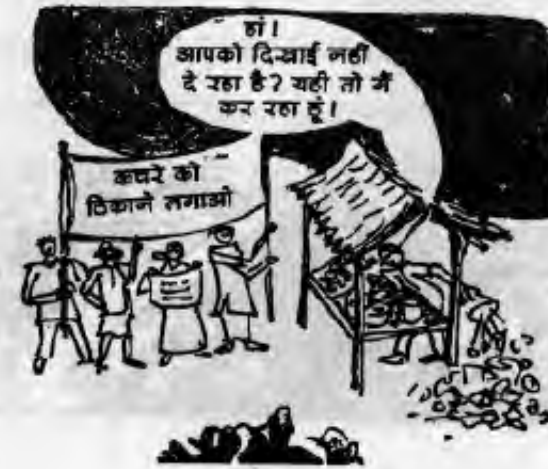 हां।
आपको दिखाई नहीं
दे रहा है? यही तो मैं
कर रहा हूं।
कचरे को
ठिकाने लगाओ